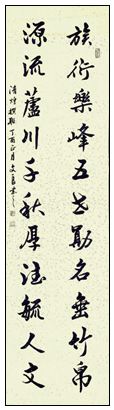 族衍樂峰五世勛名垂竹帛
源流蘆川千秋厚德毓人文
撰聯丁酉